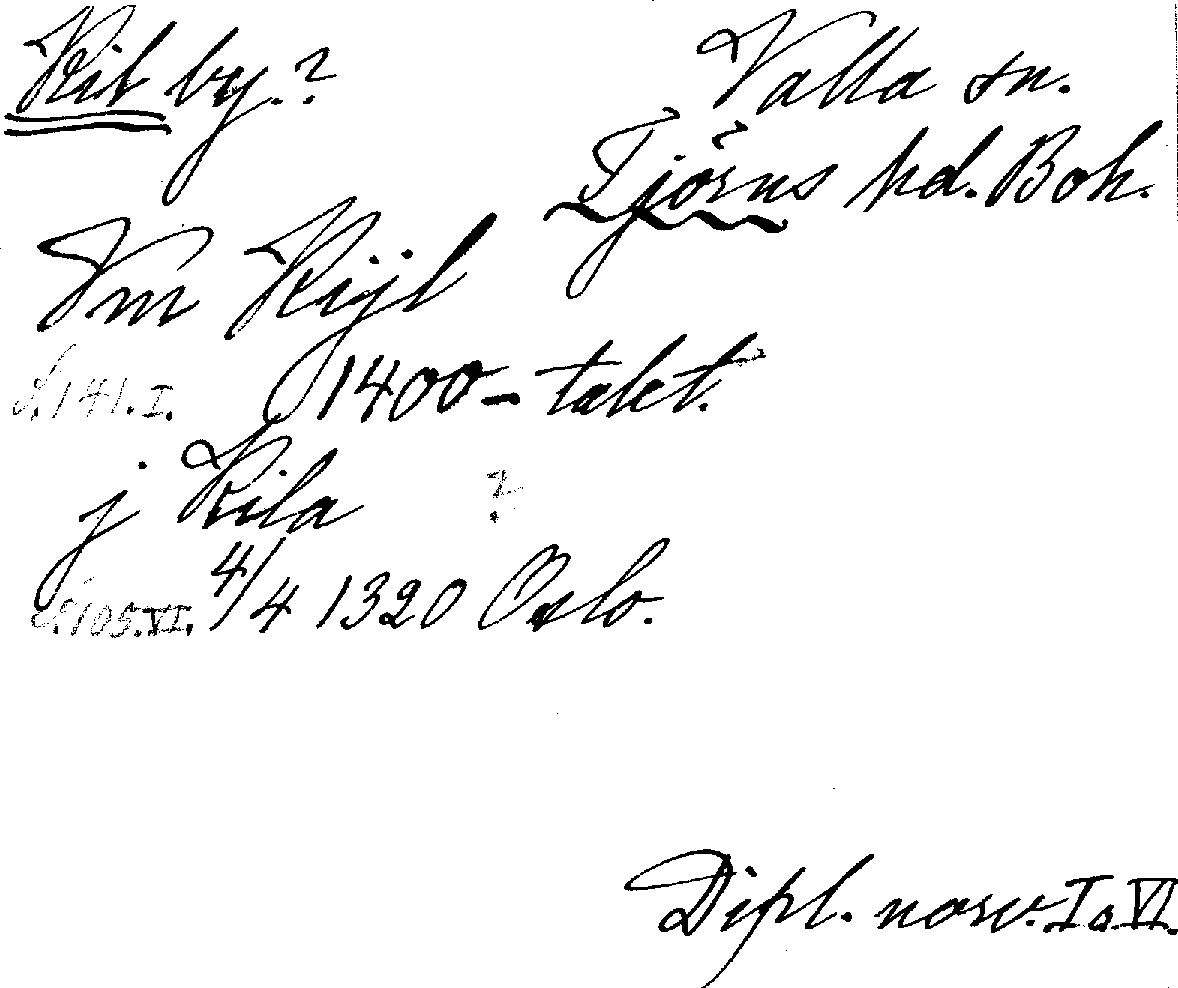 Kil by.?
Valla sn.
Tjörns hd. Boh.
Vm Kijl
S. 141. I. 1400-talet.
j Kila ?
S. 105. VI. 4/4 1320 Oslo.
Dipl. norv. I o. VI.